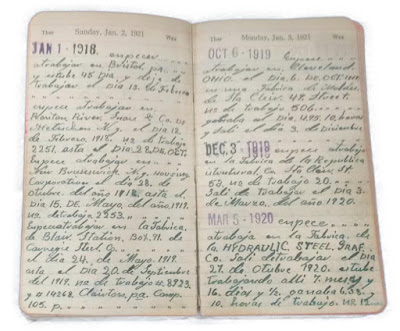 Thur Sunday, Jan. 2, 1921 Wea
JAN 1 - 1918. empecer
atrabajar en Bristol, pa.
y estube 45 Dia y deje de
trabajar el Dia 12. de Febrero
empece atrabajar en
Raritan River, Co.
Metuchen N.J. el Dia 13.
de Febrero, 1918. No Trabajo
2251, asta el Dia 28 De OCT.
Empece atrabajar en
New Brunswick N.J.
Corporation el Dia 28. de
Octubre. del año 1918. asta el
Dia 15. De Mayo. del año 1919.
No. detrabajo 2253.
Empece atrabajar en la Fabrica,
de Blair Station, Box. 71. de
Carnegie Steel Co.
el Dia 24. de Mayo. 1919.
asta el DIA 20. de Septiembre
del 1919. No de trabajo #. 8923,
y a 14268. Clairton, pa. Comp.
105. p.
Thur Monday, Jan. 3, 1921 Wea
OCT 6 - 1919 Empece
atrabajar en Cleveland
OHIO. el DIA 6. DE OCT. 1919
en una Fabrica de
Sta Clair. 47. Street.
No de Trabajo 506.
ganaba al Dia 4.95. 10, horas
y Sali el Dia 3. de Diciembre
DEC. 3 - 1919 empece atrabajar
en la Fabrica de la Republica
Structural, Co. Sta Clair, St.
53. No de Trabajo 20.
Sali de Trabajar el Dia 3.
de Marzo, del año 1920.
MAR 5 - 1920 empece
atrabaja en la Fabrica. de
la HYDRAULIC STEEL CRAF.
Co. Sali detrabajar el Dia
27. de Otubre 1920. estube
trabajando alli 7. meses y
16. dias y ½. ganaba 6.38.
10. horas de trabajo. No. 12